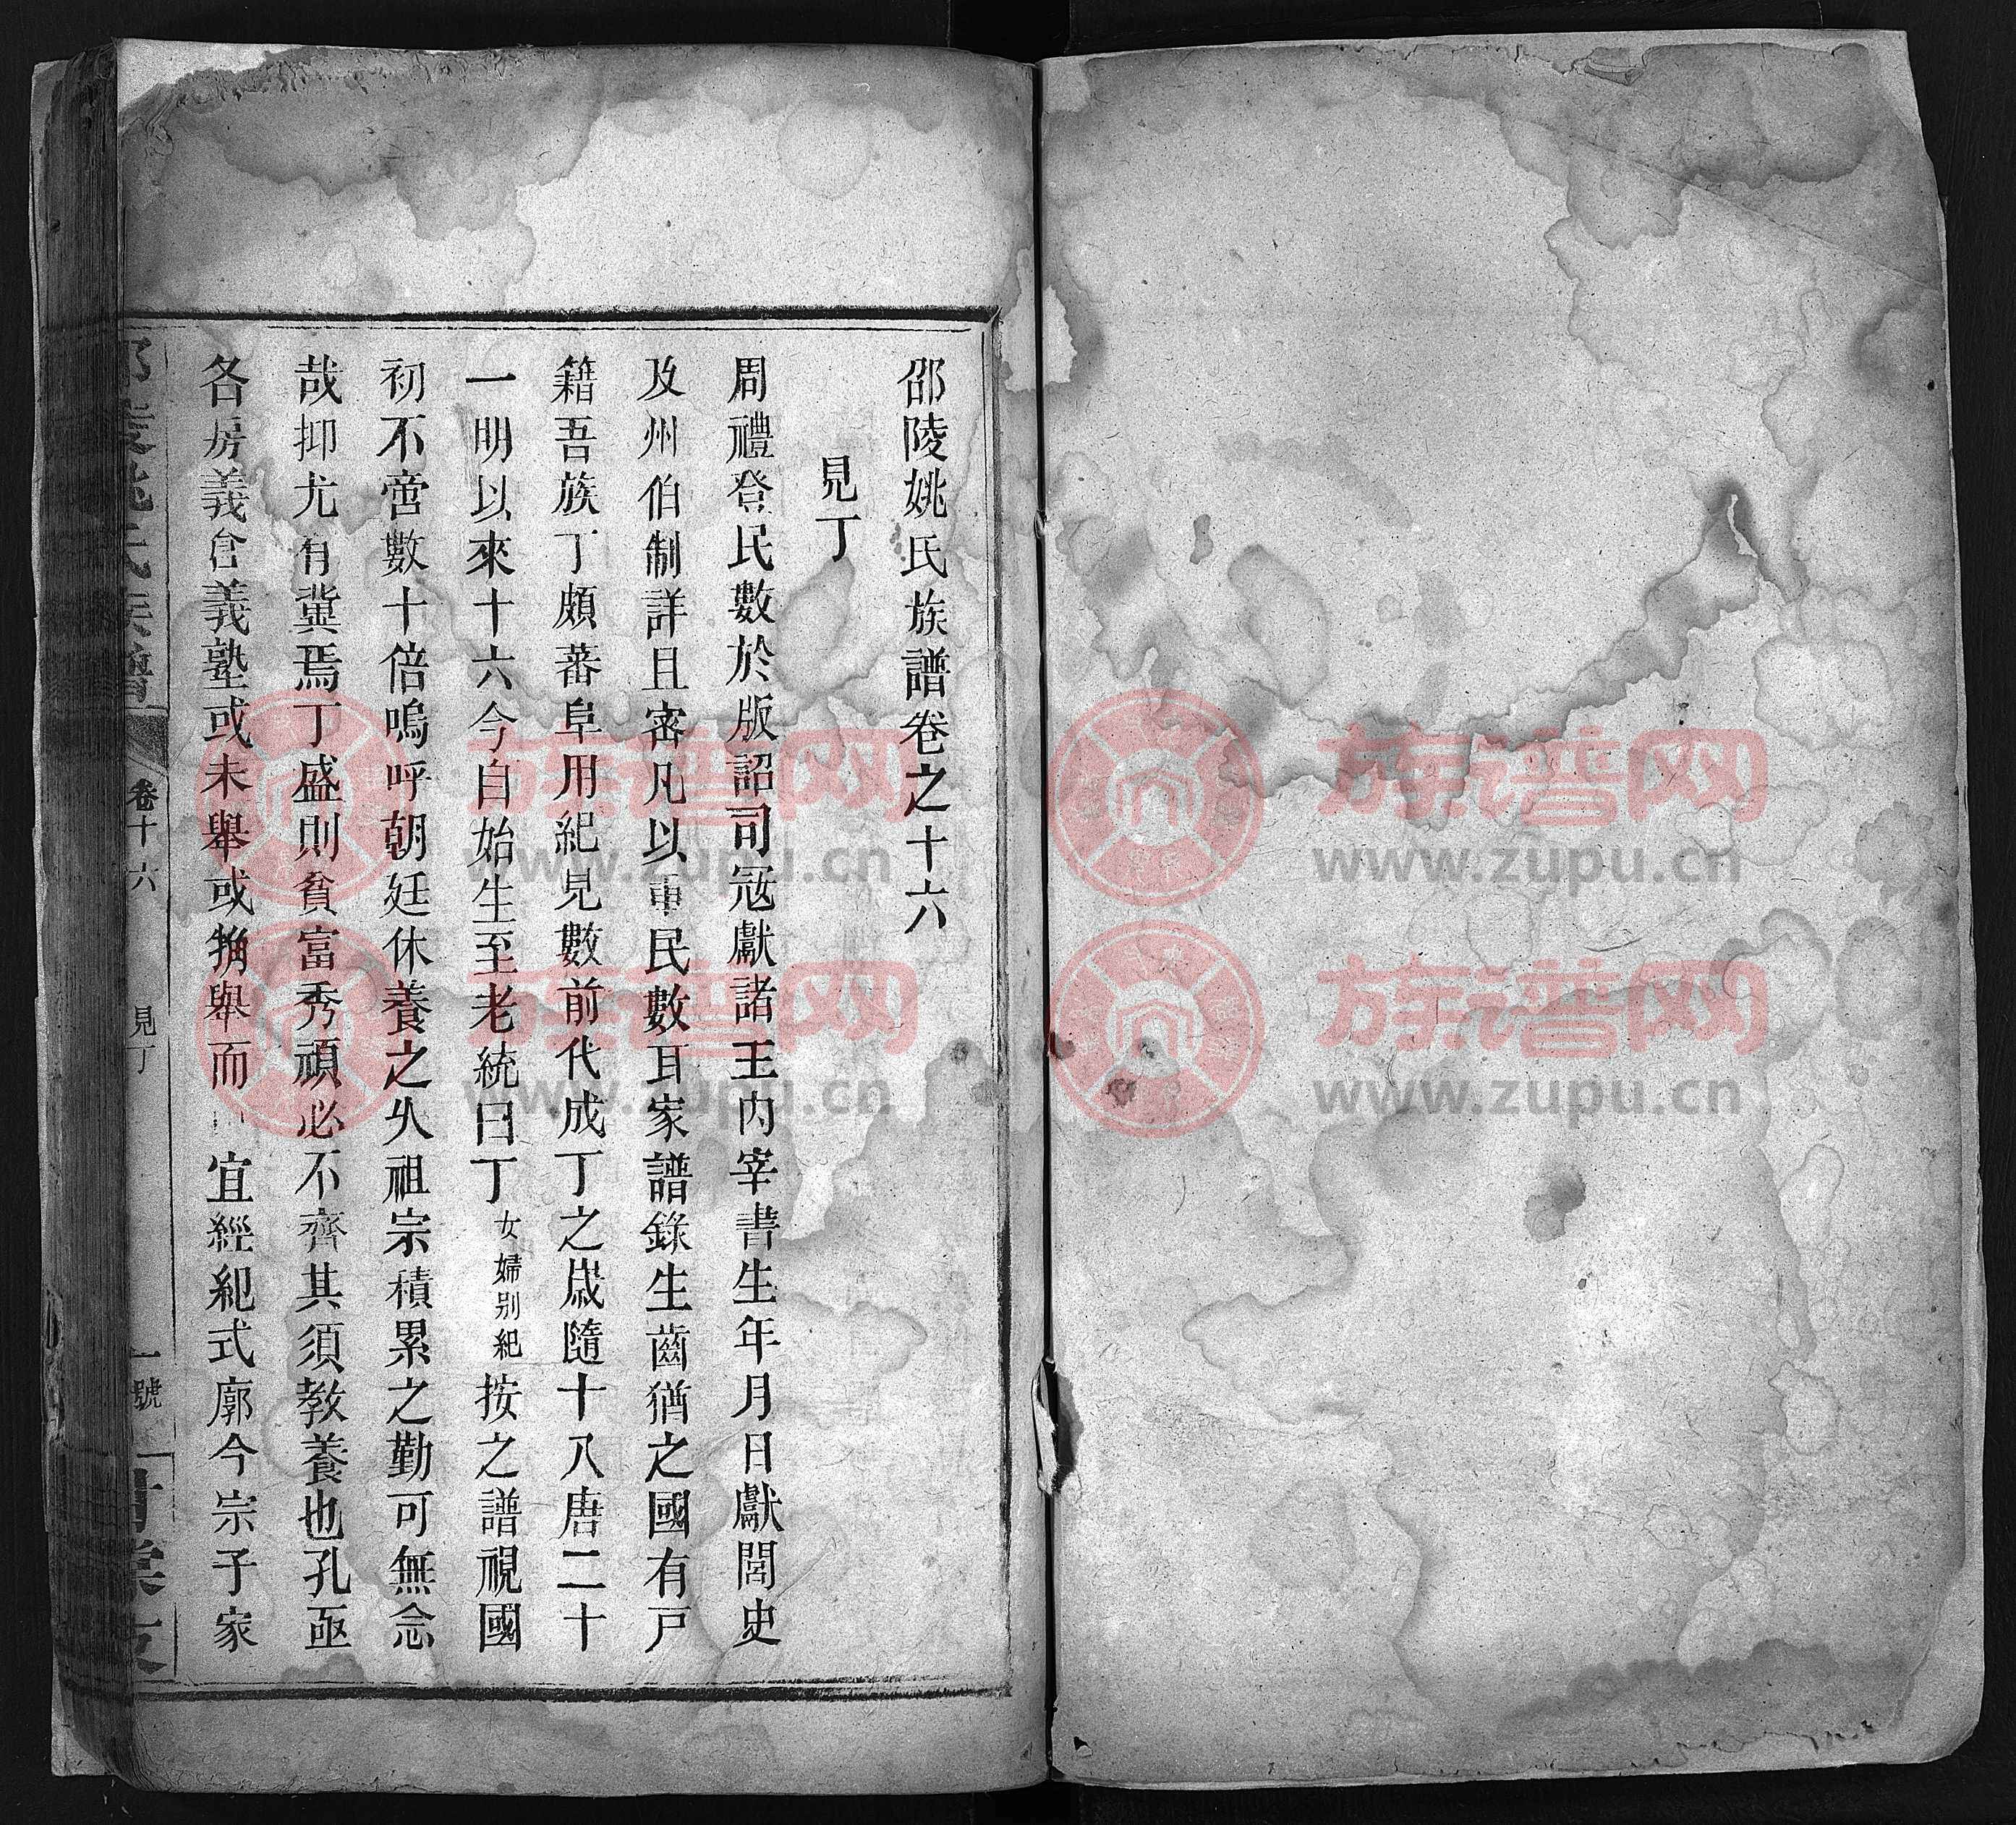 邵陵姚氏族譜卷之十六
見丁
周禮登民數於版詔司冦獻諸王内宰書生年月日獻閭史
及州伯制詳且審凡以重民數耳家譜錄生齒猶之國有戸
籍吾族丁頗蕃阜用紀見數前代成丁之歲隨十八唐二十
一明以來十六今自始生至老統曰丁女婦別紀按之譜視國
初不啻數十倍嗚呼朝廷休養之久祖宗積累之勤可無念
哉抑尤有冀焉丁盛則貧富秀頑必不齊其須教養也孔亟
各房義倉義塾或未舉或舉而宜經紀式廓今宗子家
卷十六
見丁
一號
族谱网
www.zupu.cn
族谱网
www.zupu.cn
族谱网
www.zupu.cn
族谱网
www.zupu.cn